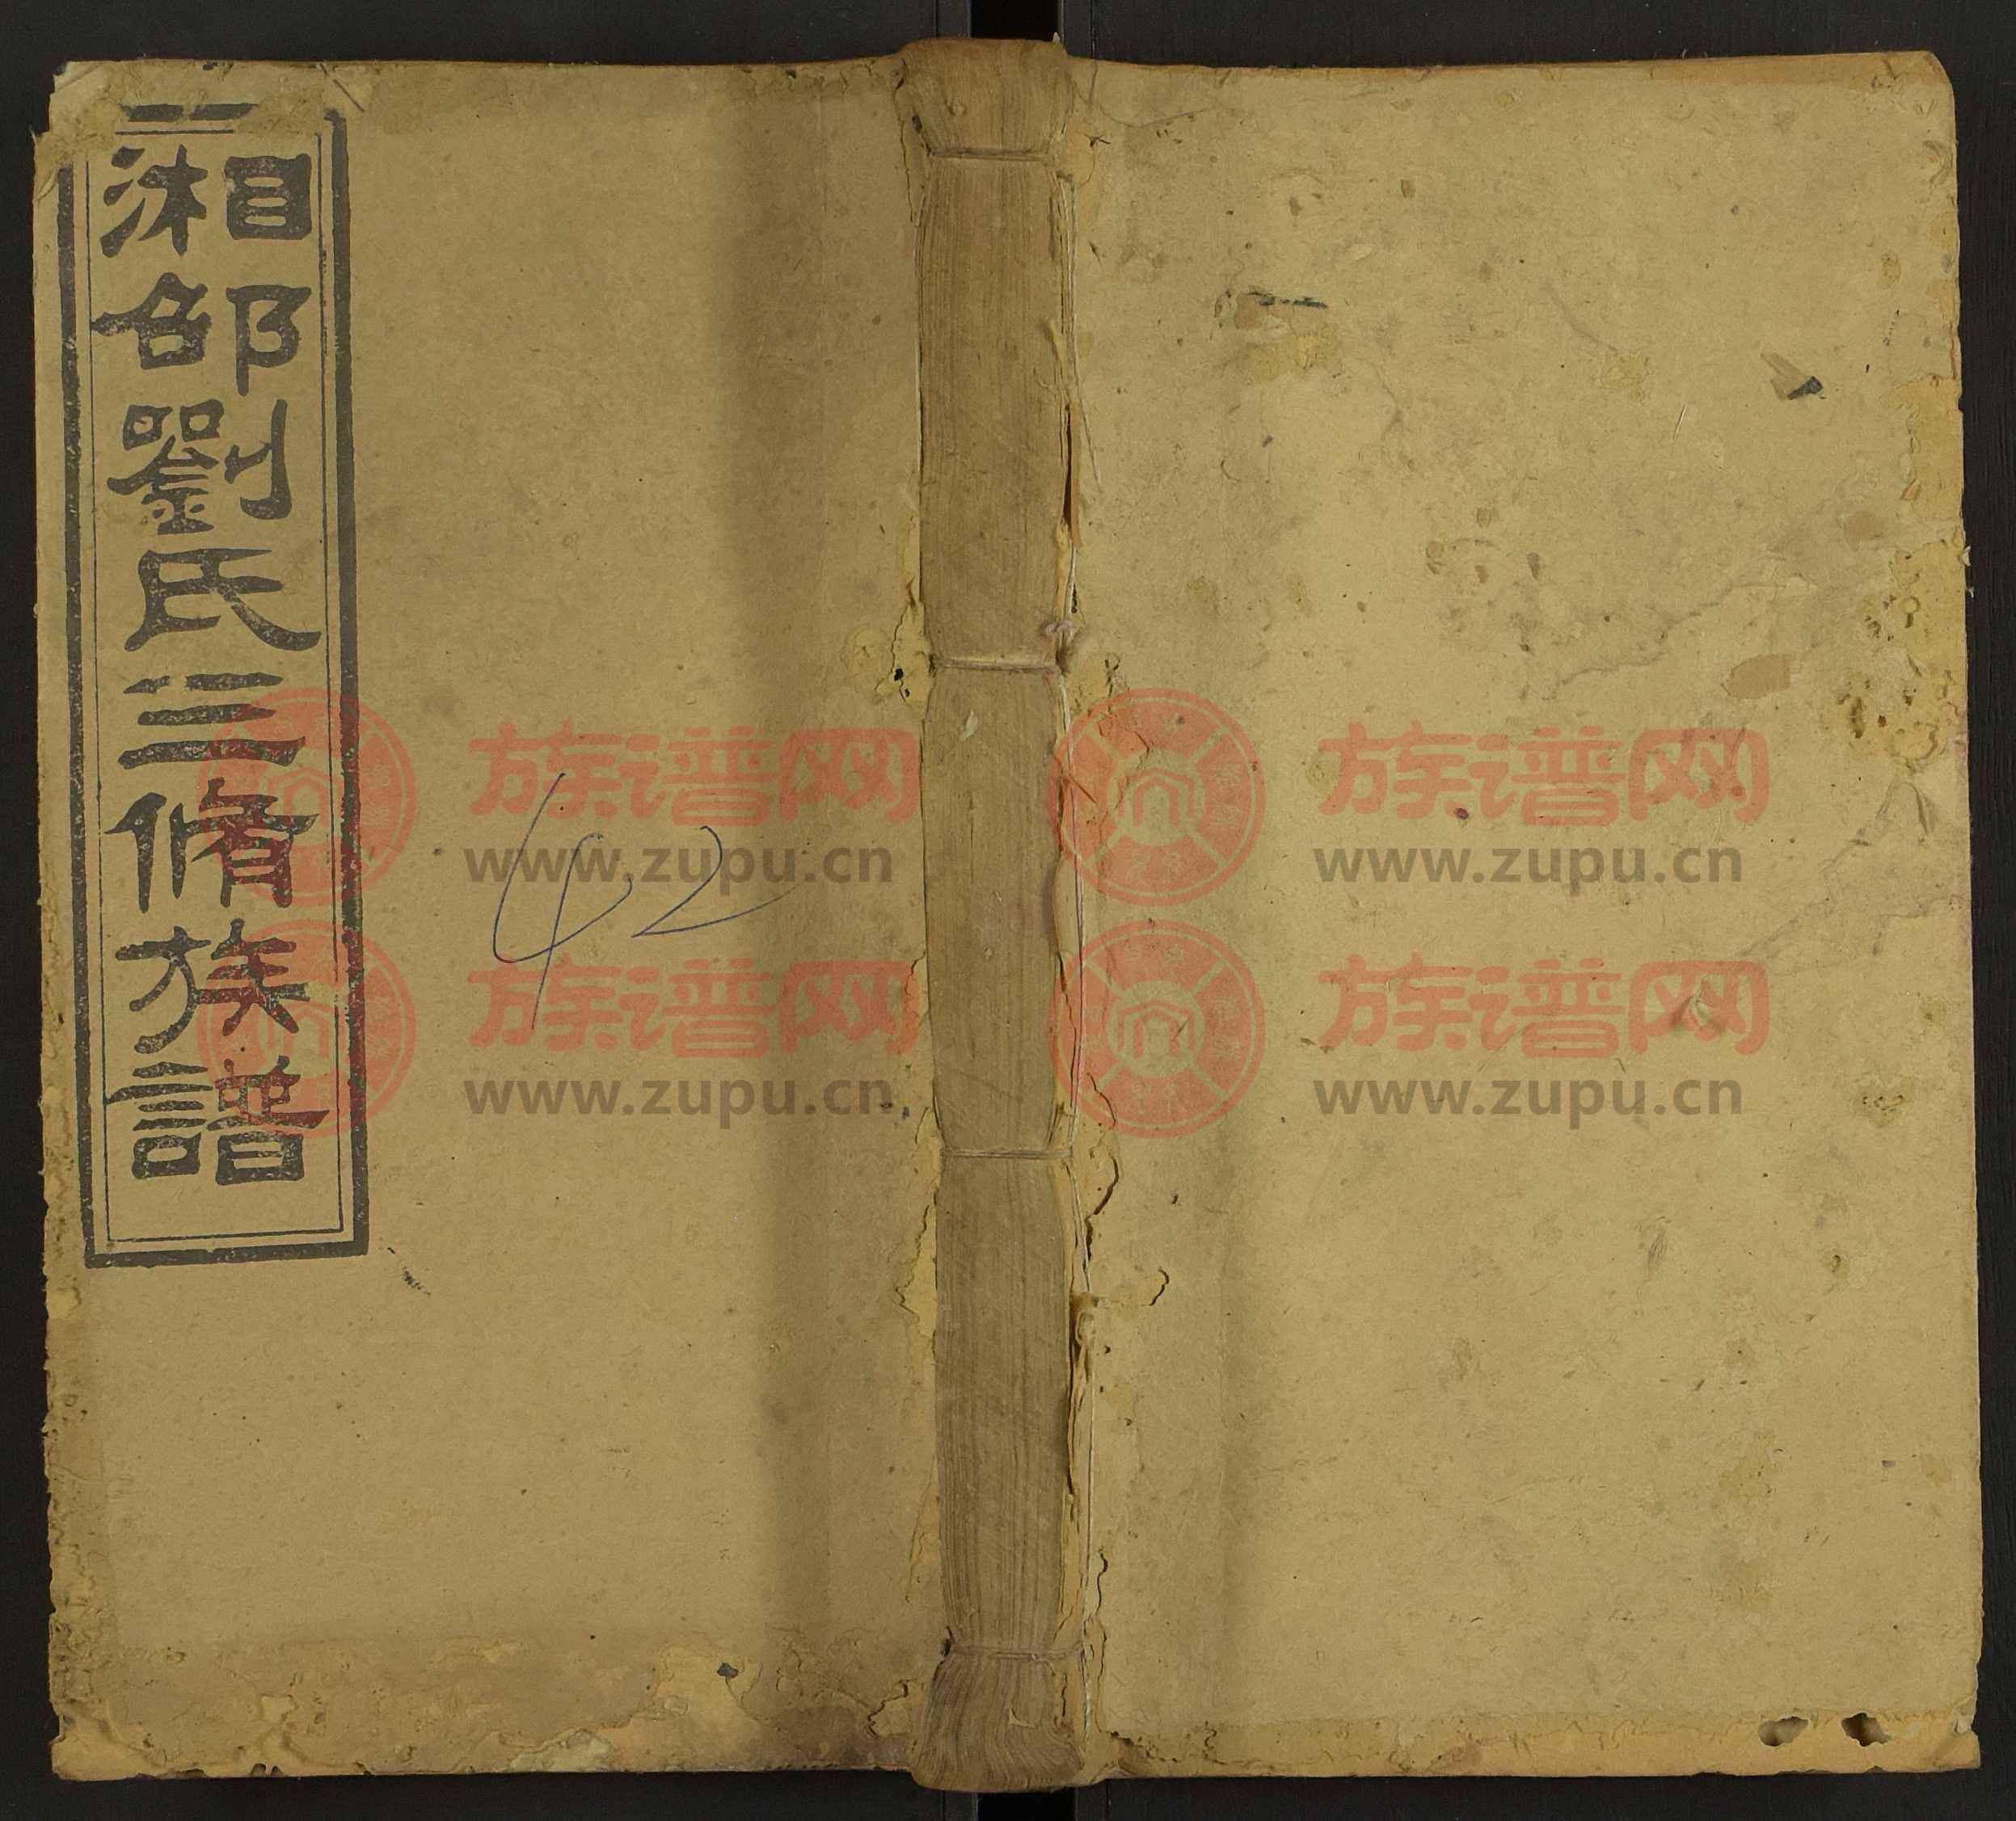 湘邵劉氏三脩族譜
42
族谱网
www.zupu.cn
族谱网
www.zupu.cn
族谱网
www.zupu.cn
族谱网
www.zupu.cn